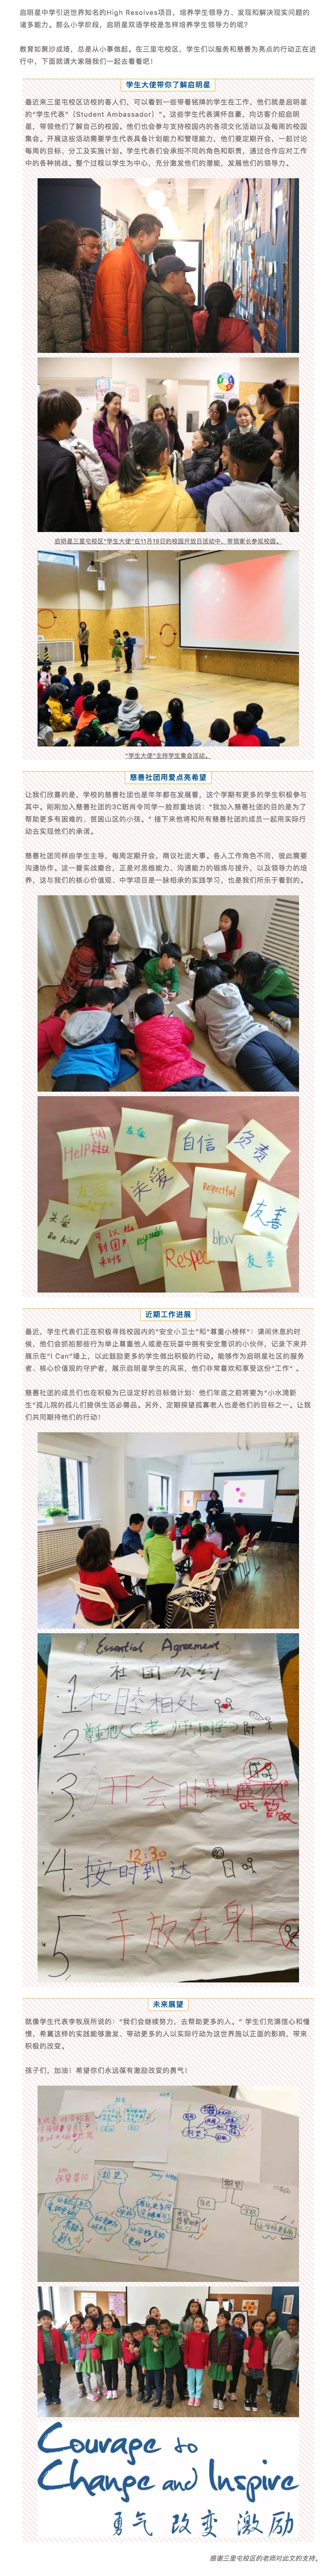 启明星中学引进世界知名的High Resolves项目，培养学生领导力、发现和解决现实问题的
诸多能力。那么小学阶段，启明星双语学校是怎样培养学生领导力的呢？
教育如聚沙成塔，总是从小事做起。在三里屯校区，学生们以服务和慈善为亮点的行动正在进
行中，下面就请大家随我们一起去看看吧！
学生大使带你了解启明星
最近来三里屯校区访校的客人们，可以看到一些带着铭牌的学生在工作，他们就是启明星
的“学生代表”（Student Ambassador）”。这些学生代表满怀自豪，向访客介绍启明
星，带领他们了解自己的校园。他们也会参与支持校园内的各项文化活动以及每周的校园
集会。开展这些活动需要学生代表具备计划能力和管理能力，他们要定期开会，一起讨论
每周的目标、分工及实施计划。学生代表们会承担不同的角色和职责，通过合作应对工作
中的各种挑战。整个过程以学生为中心，充分激发他们的潜能，发展他们的领导力。
启明星三里屯校区“学生大使”在11月19日的校园开放日活动中，带领家长参观校园。
“学生大使”主持学生集会活动。
慈善社团用爱点亮希望
让我们欣喜的是，学校的慈善社团也是年年都在发展着，这个学期有更多的学生积极参与
其中。刚刚加入慈善社团的3C班肖令同学一脸郑重地说：“我加入慈善社团的目的是为了
帮助更多有困难的、贫困山区的小孩。” 接下来他将和所有慈善社团的成员一起用实际行
动去实现他们的承诺。
慈善社团同样由学生主导，每周定期开会，商议社团大事。各人工作角色不同，彼此需要
沟通协作。这一番实战磨合，正是对思维能力、沟通能力的锻炼与提升，以及领导力的培
养，这与我们的核心价值观、中学项目是一脉相承的实践学习，也是我们所乐于看到的。
Helpful
友爱
自信
负责
友爱
关爱
Respectful
友善
关爱
Be kind
可以
responsible
Respec
brav
友善
近期工作进展
最近，学生代表们正在积极寻找校园内的“安全小卫士”和“尊重小榜样”：课间休息的时
候，他们会抓拍那些行为举止尊重他人或是在玩耍中拥有安全意识的小伙伴，记录下来并
展示在“I Can”墙上，以此鼓励更多的学生做出积极的行动。能够作为启明星社区的服务
者、核心价值观的守护者，展示启明星学生的风采，他们非常喜欢和享受这份“工作” 。
慈善社团的成员们也在积极为已设定好的目标做计划：他们年底之前将要为“小水滴新
生”孤儿院的孤儿们提供生活必需品。另外，定期探望孤寡老人也是他们的目标之一。让我
们共同期待他们的行动！
Essential Agreement
社团公约
1. 和睦相处
2. 尊重他人(老师同学)
3. 开会时禁止
吃饭
4. 按时到达
12:30
5 手放在身上
未来展望
就像学生代表李牧辰所说的：“我们会继续努力，去帮助更多的人。” 学生们充满信心和憧
憬，希冀这样的实践能够激发、带动更多的人以实际行动为这世界施以正面的影响，带来
积极的改变。
孩子们，加油！希望你们永远葆有激励改变的勇气！
期望
自己
学校
Courage to
Change and Inspire
勇气 改变 激励
感谢三里屯校区的老师对此文的支持。